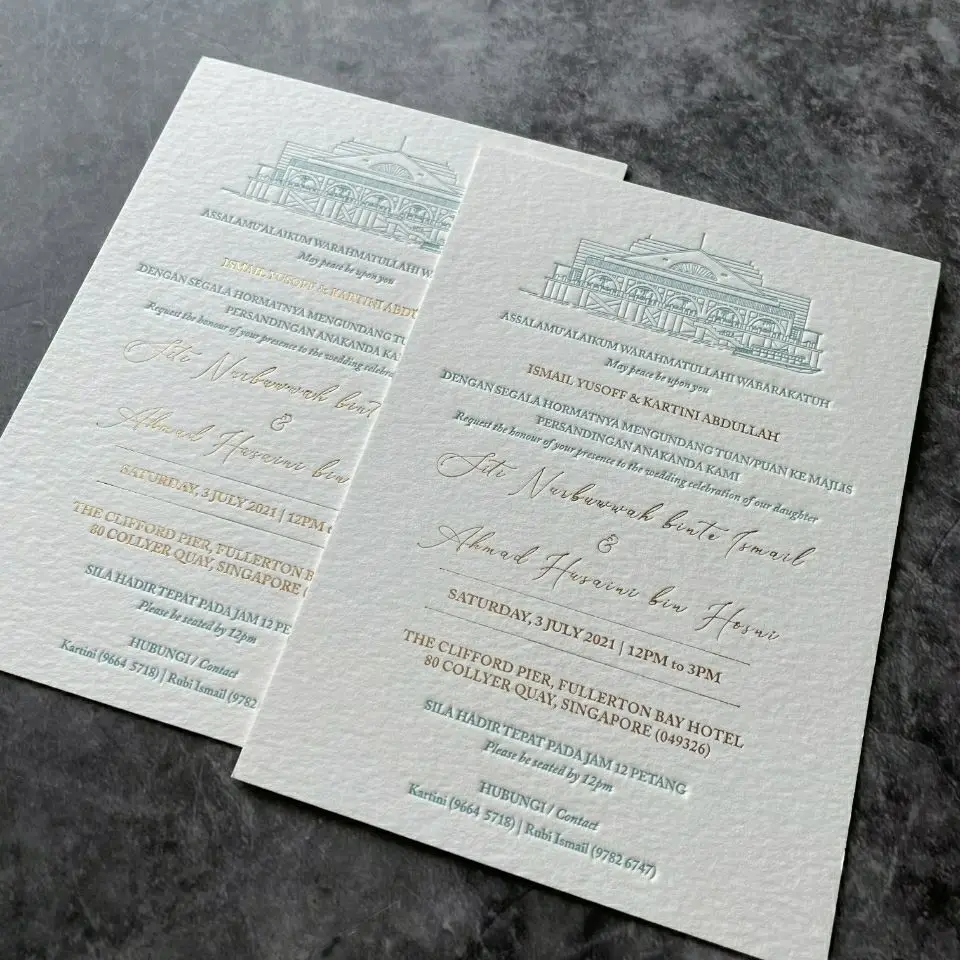 ASSALAMU'ALAIKUM WARAHMATULLAHI W
May peace be upon you
ISMAIL YUSOFF & KARTINI ABD
DENGAN SEGALA HORMATNYA MENGUNDANG TU
PERSANDINGAN ANAKANDA KA
Request the honour of your presence to the wedding celebra
Siti Nurbawwah bint
&
Ahmad Husaini bin
SATURDAY, 3 JULY 2021 | 12PM
THE CLIFFORD PIER, FULLERTON B
80 COLLYER QUAY, SINGAPORE (
SILA HADIR TEPAT PADA JAM 12 PE
Please be seated by 12pm
HUBUNGI / Contact
Kartini (9664 5718) | Rubi Ismail (9782
ASSALAMU'ALAIKUM WARAHMATULLAHI WABARAKATUH
May peace be upon you
ISMAIL YUSOFF & KARTINI ABDULLAH
DENGAN SEGALA HORMATNYA MENGUNDANG TUAN/PUAN KE MAJLIS
PERSANDINGAN ANAKANDA KAMI
Request the honour of your presence to the wedding celebration of our daughter
Siti Nurbawwah binte Ismail
&
Ahmad Husaini bin Hosni
SATURDAY, 3 JULY 2021 | 12PM to 3PM
THE CLIFFORD PIER, FULLERTON BAY HOTEL
80 COLLYER QUAY, SINGAPORE (049326)
SILA HADIR TEPAT PADA JAM 12 PETANG
Please be seated by 12pm
HUBUNGI / Contact
Kartini (9664 5718) | Rubi Ismail (9782 6747)